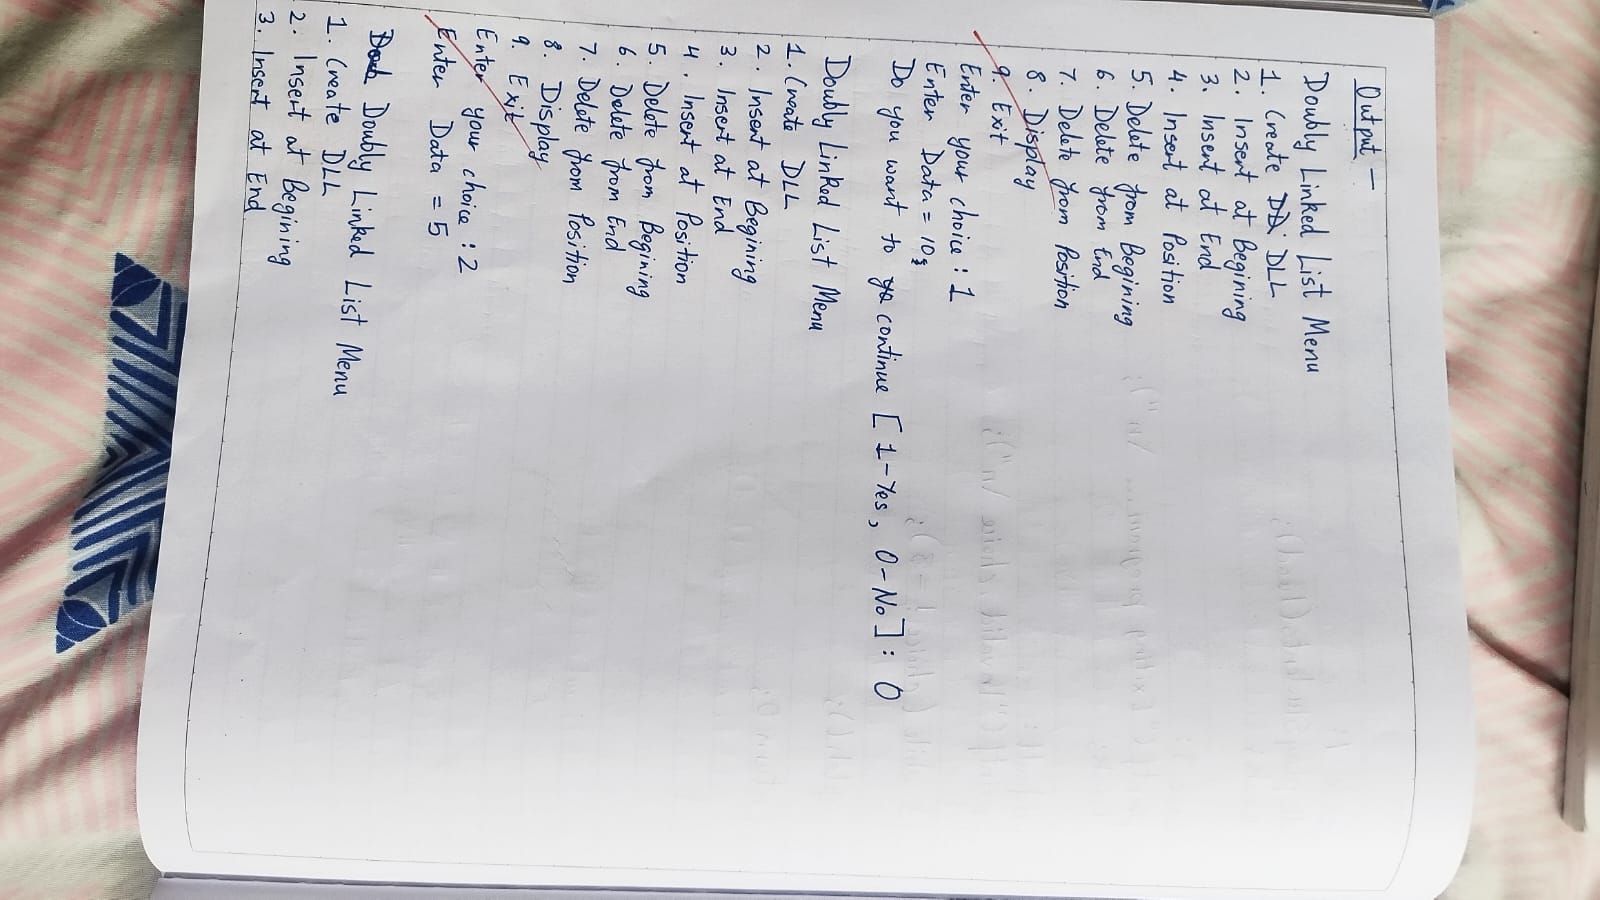 Output -
Doubly Linked List Menu
1. Create DLL
2. Insert at Begining
3. Insert at End
4. Insert at Position
5. Delete from Begining
6. Delete from End
7. Delete from Position
8. Display
9. Exit
Enter your choice : 1
Enter Data = 10
Do you want to continue [ 1-Yes, 0-No ] : 0
Doubly Linked List Menu
1. Create DLL
2. Insert at Begining
3. Insert at End
4. Insert at Position
5. Delete from Begining
6. Delete from End
7. Delete from Position
8. Display
9. Exit
Enter your choice : 2
Enter Data = 5
Doubly Linked List Menu
1. Create DLL
2. Insert at Begining
3. Insert at End